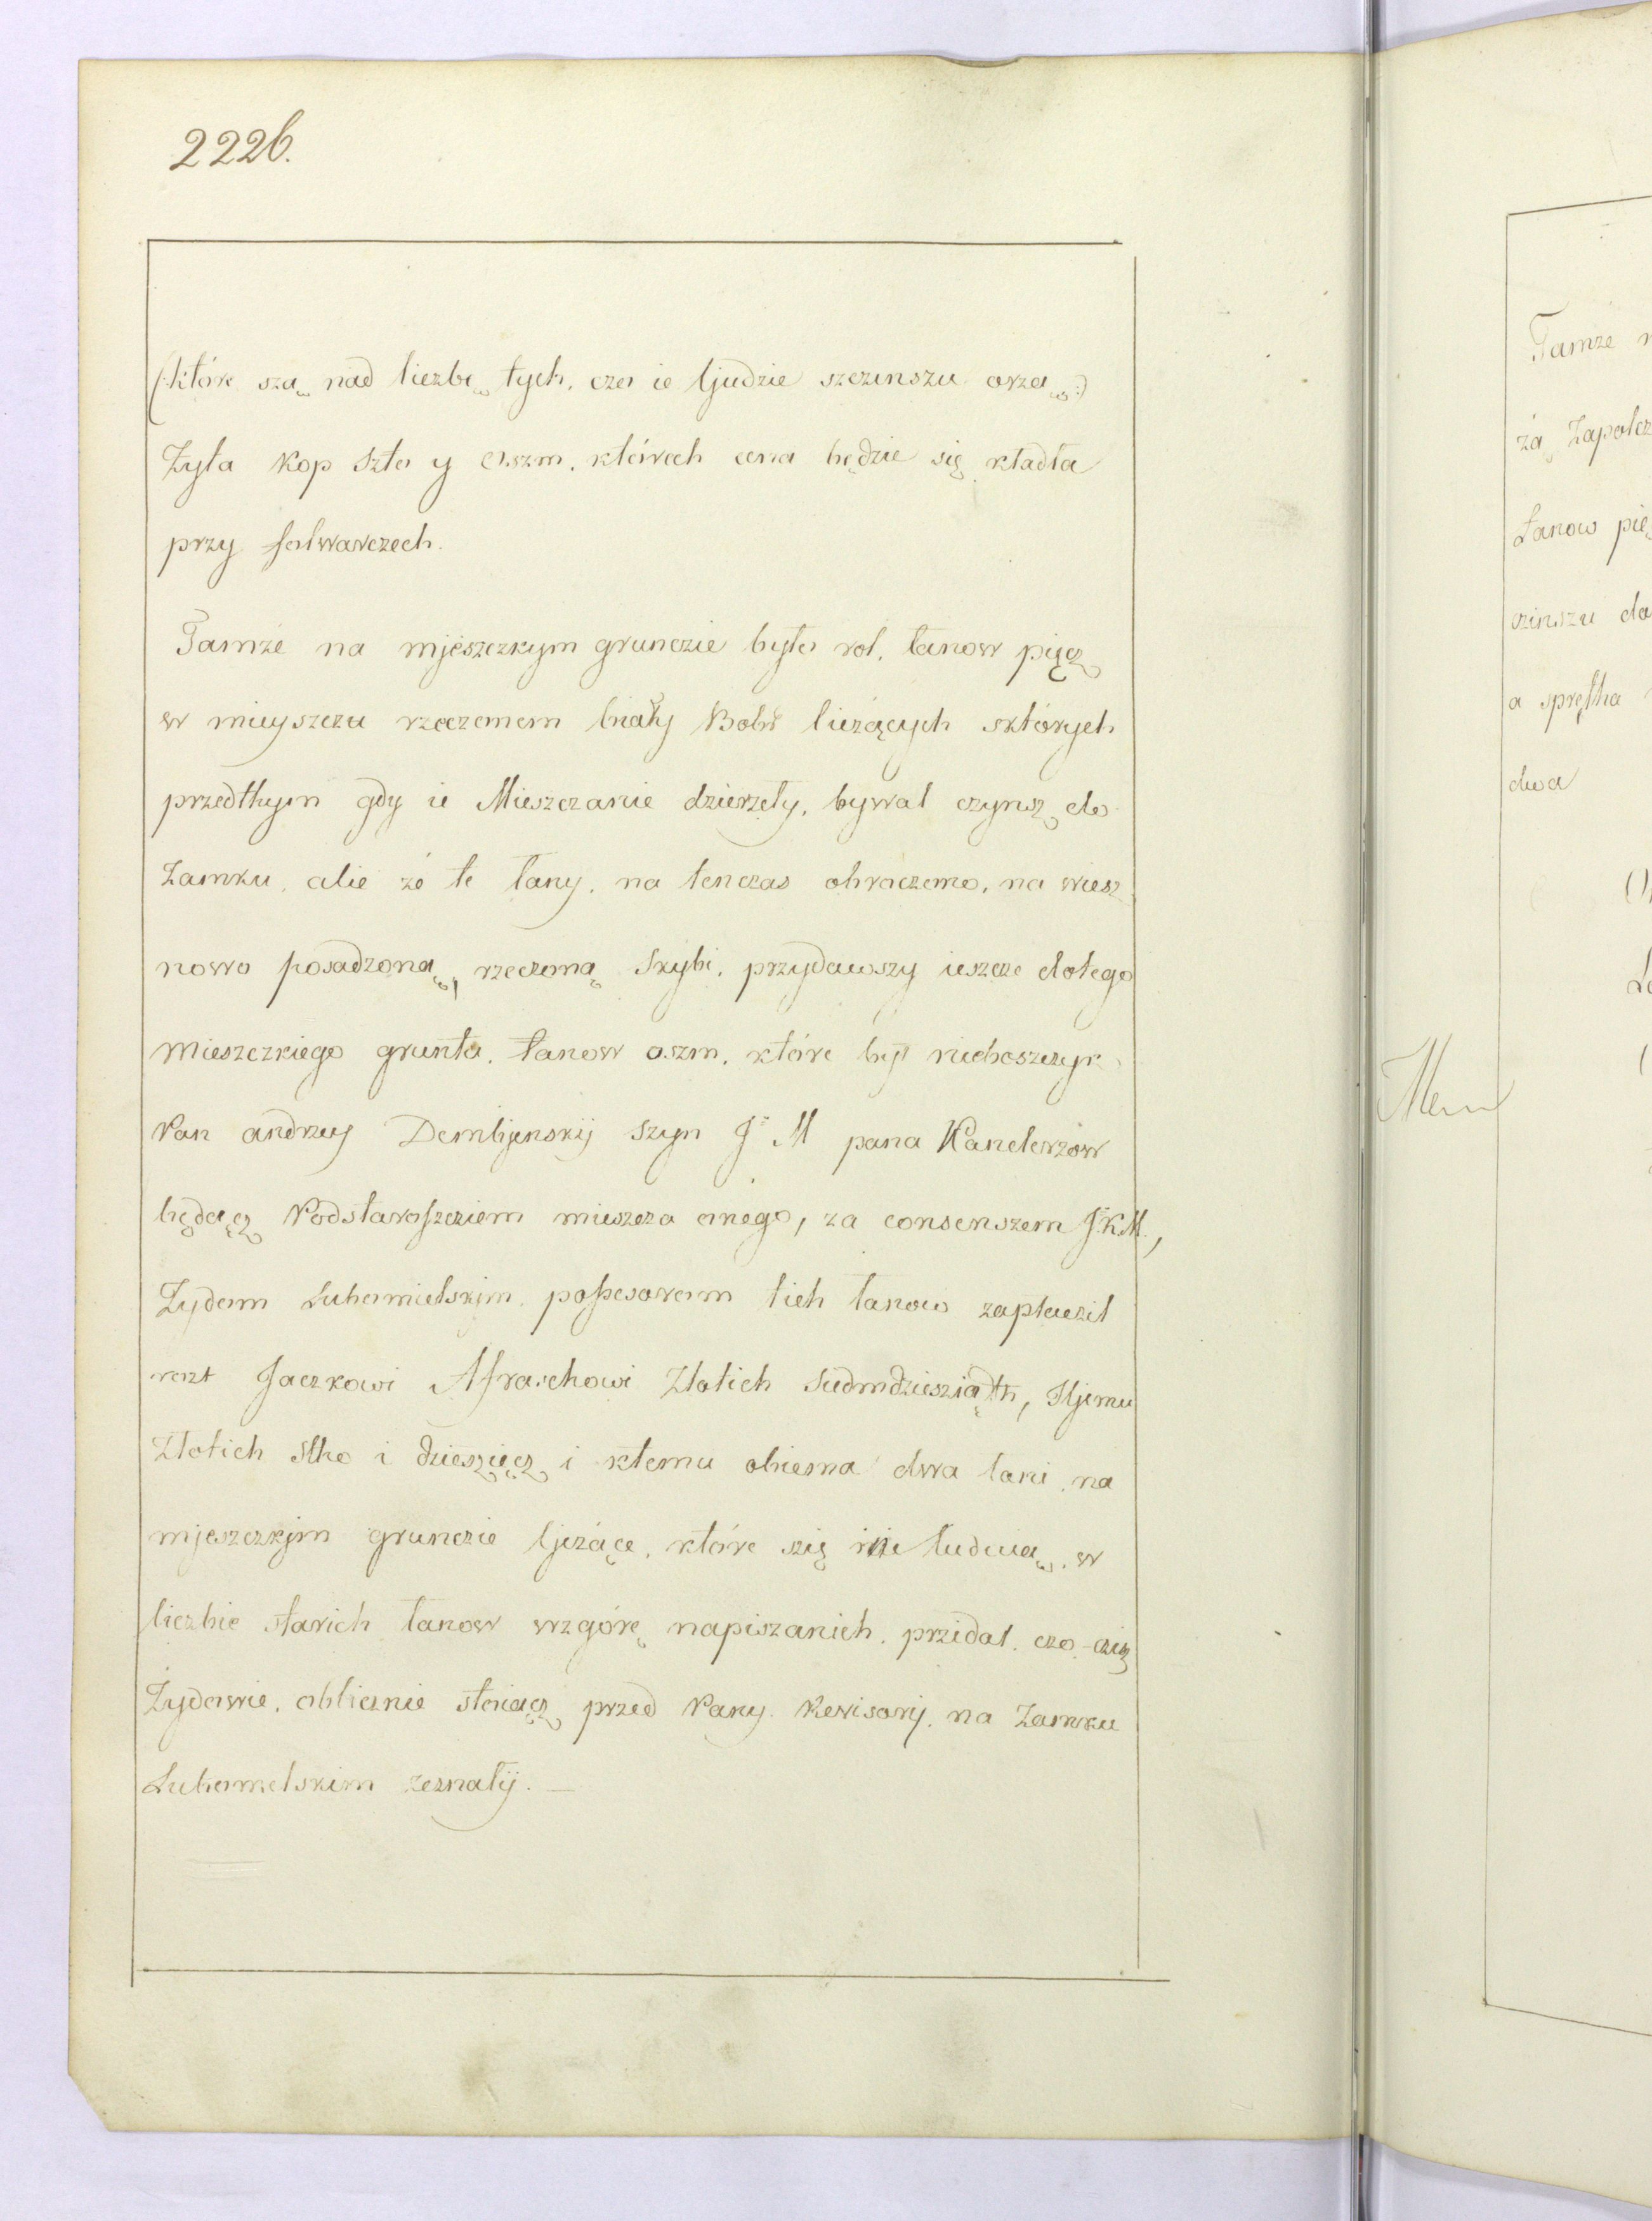 2226.
(:które szą nad liczbę tych, czo ie ljudzie szczinszu orzą:)
Żyta kop szto y oszm, którech cena będzie się kładła
przy folwarczech.
Tamże na mjeszczkym grunczie było rol, łanow pięcz
w mieyszczu rzeczenem biały Bobr lieżących sktórych
przedthym gdy ie Mieszczanie dzierzely, bywal czynsz do
Zamku, alie że te łany, na tenczas obroczono, na wiesz
nowo posadzoną, rzeczoną Skybi, przydawszy ieszcze dotego
Mieszczkiego gruntu, łanow oszm, które był nieboszczyk
Pan andrzey Dembijenskij Szyn J. M pana Kanclerzow
będącz Podstaroszcziem mieszcza onego, za consenszem J.K.M.,
Żydom Lubomielskim, possesorom tich łanow zapłaczil
Jaczkowi Afraschowi Złotich Siedmdziesziąth,
Złotich stho i dzieszięcz i ktemu obiema dwa łani, na
mjeszczkjm grunczie ljeżące, które szię
liczbie starich łanow wzgórę napiszanich, przidal, czo ciż
Żydowie, oblicznie stoiącz przed Pany Rewisorij, na Zamku
Lubomelskim zeznalij. —
Tamże
żą Zapolcz
Łanow pię
czinszu do
a
dwa